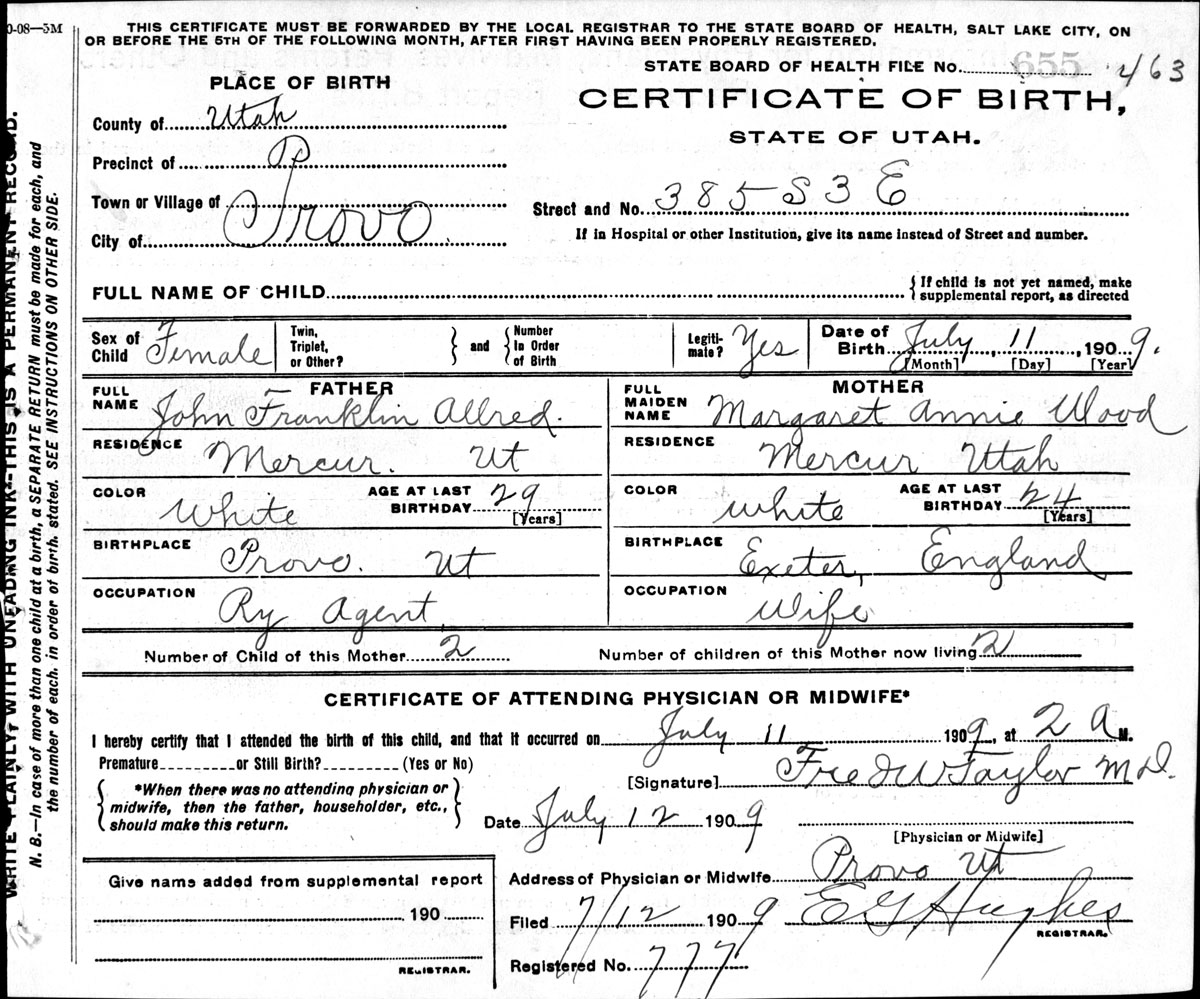 0-08—5M
THIS CERTIFICATE MUST BE FORWARDED BY THE LOCAL REGISTRAR TO THE STATE BOARD OF HEALTH, SALT LAKE CITY, ON
OR BEFORE THE 5TH OF THE FOLLOWING MONTH, AFTER FIRST HAVING BEEN PROPERLY REGISTERED.
STATE BOARD OF HEALTH FILE No. 655 463
PLACE OF BIRTH
CERTIFICATE OF BIRTH,
STATE OF UTAH.
County of Utah
Precinct of P
Town or Village of
City of Provo
Street and No. 385 S 3 E
If in Hospital or other Institution, give its name instead of Street and number.
FULL NAME OF CHILD
{If child is not yet named, make
supplemental report, as directed
Sex of Child Female
Twin, Triplet, or Other? } and { Number In Order of Birth
Legiti- mate? Yes
Date of Birth July 11, 1909.
[Month] [Day] [Year]
FATHER
FULL NAME John Franklin Allred.
RESIDENCE Mercur. Ut
COLOR White AGE AT LAST BIRTHDAY 29 [Years]
BIRTHPLACE Provo. Ut
OCCUPATION Ry Agent
MOTHER
FULL MAIDEN NAME Margaret Annie Wood
RESIDENCE Mercur Utah
COLOR white AGE AT LAST BIRTHDAY 24 [Years]
BIRTHPLACE Exeter, England
OCCUPATION Wife
Number of Child of this Mother 2 Number of children of this Mother now living 2
CERTIFICATE OF ATTENDING PHYSICIAN OR MIDWIFE*
I hereby certify that I attended the birth of this child, and that it occurred on July 11 1909, at 2 A M.
Premature or Still Birth? (Yes or No)
[Signature] Fred W Taylor M D.
{*When there was no attending physician or
midwife, then the father, householder, etc.,
should make this return.}
Date July 12 1909
[Physician or Midwife]
Address of Physician or Midwife Provo Ut
Filed 7/12 1909 E G Hughes
REGISTRAR.
Registered No. 777
Give name added from supplemental report
190
REGISTRAR.
WRITE PLAINLY, WITH UNFADING INK—THIS IS A PERMANENT RECORD.
N. B.—In case of more than one child at a birth, a SEPARATE RETURN must be made for each, and
the number of each, in order of birth, stated. SEE INSTRUCTIONS ON OTHER SIDE.